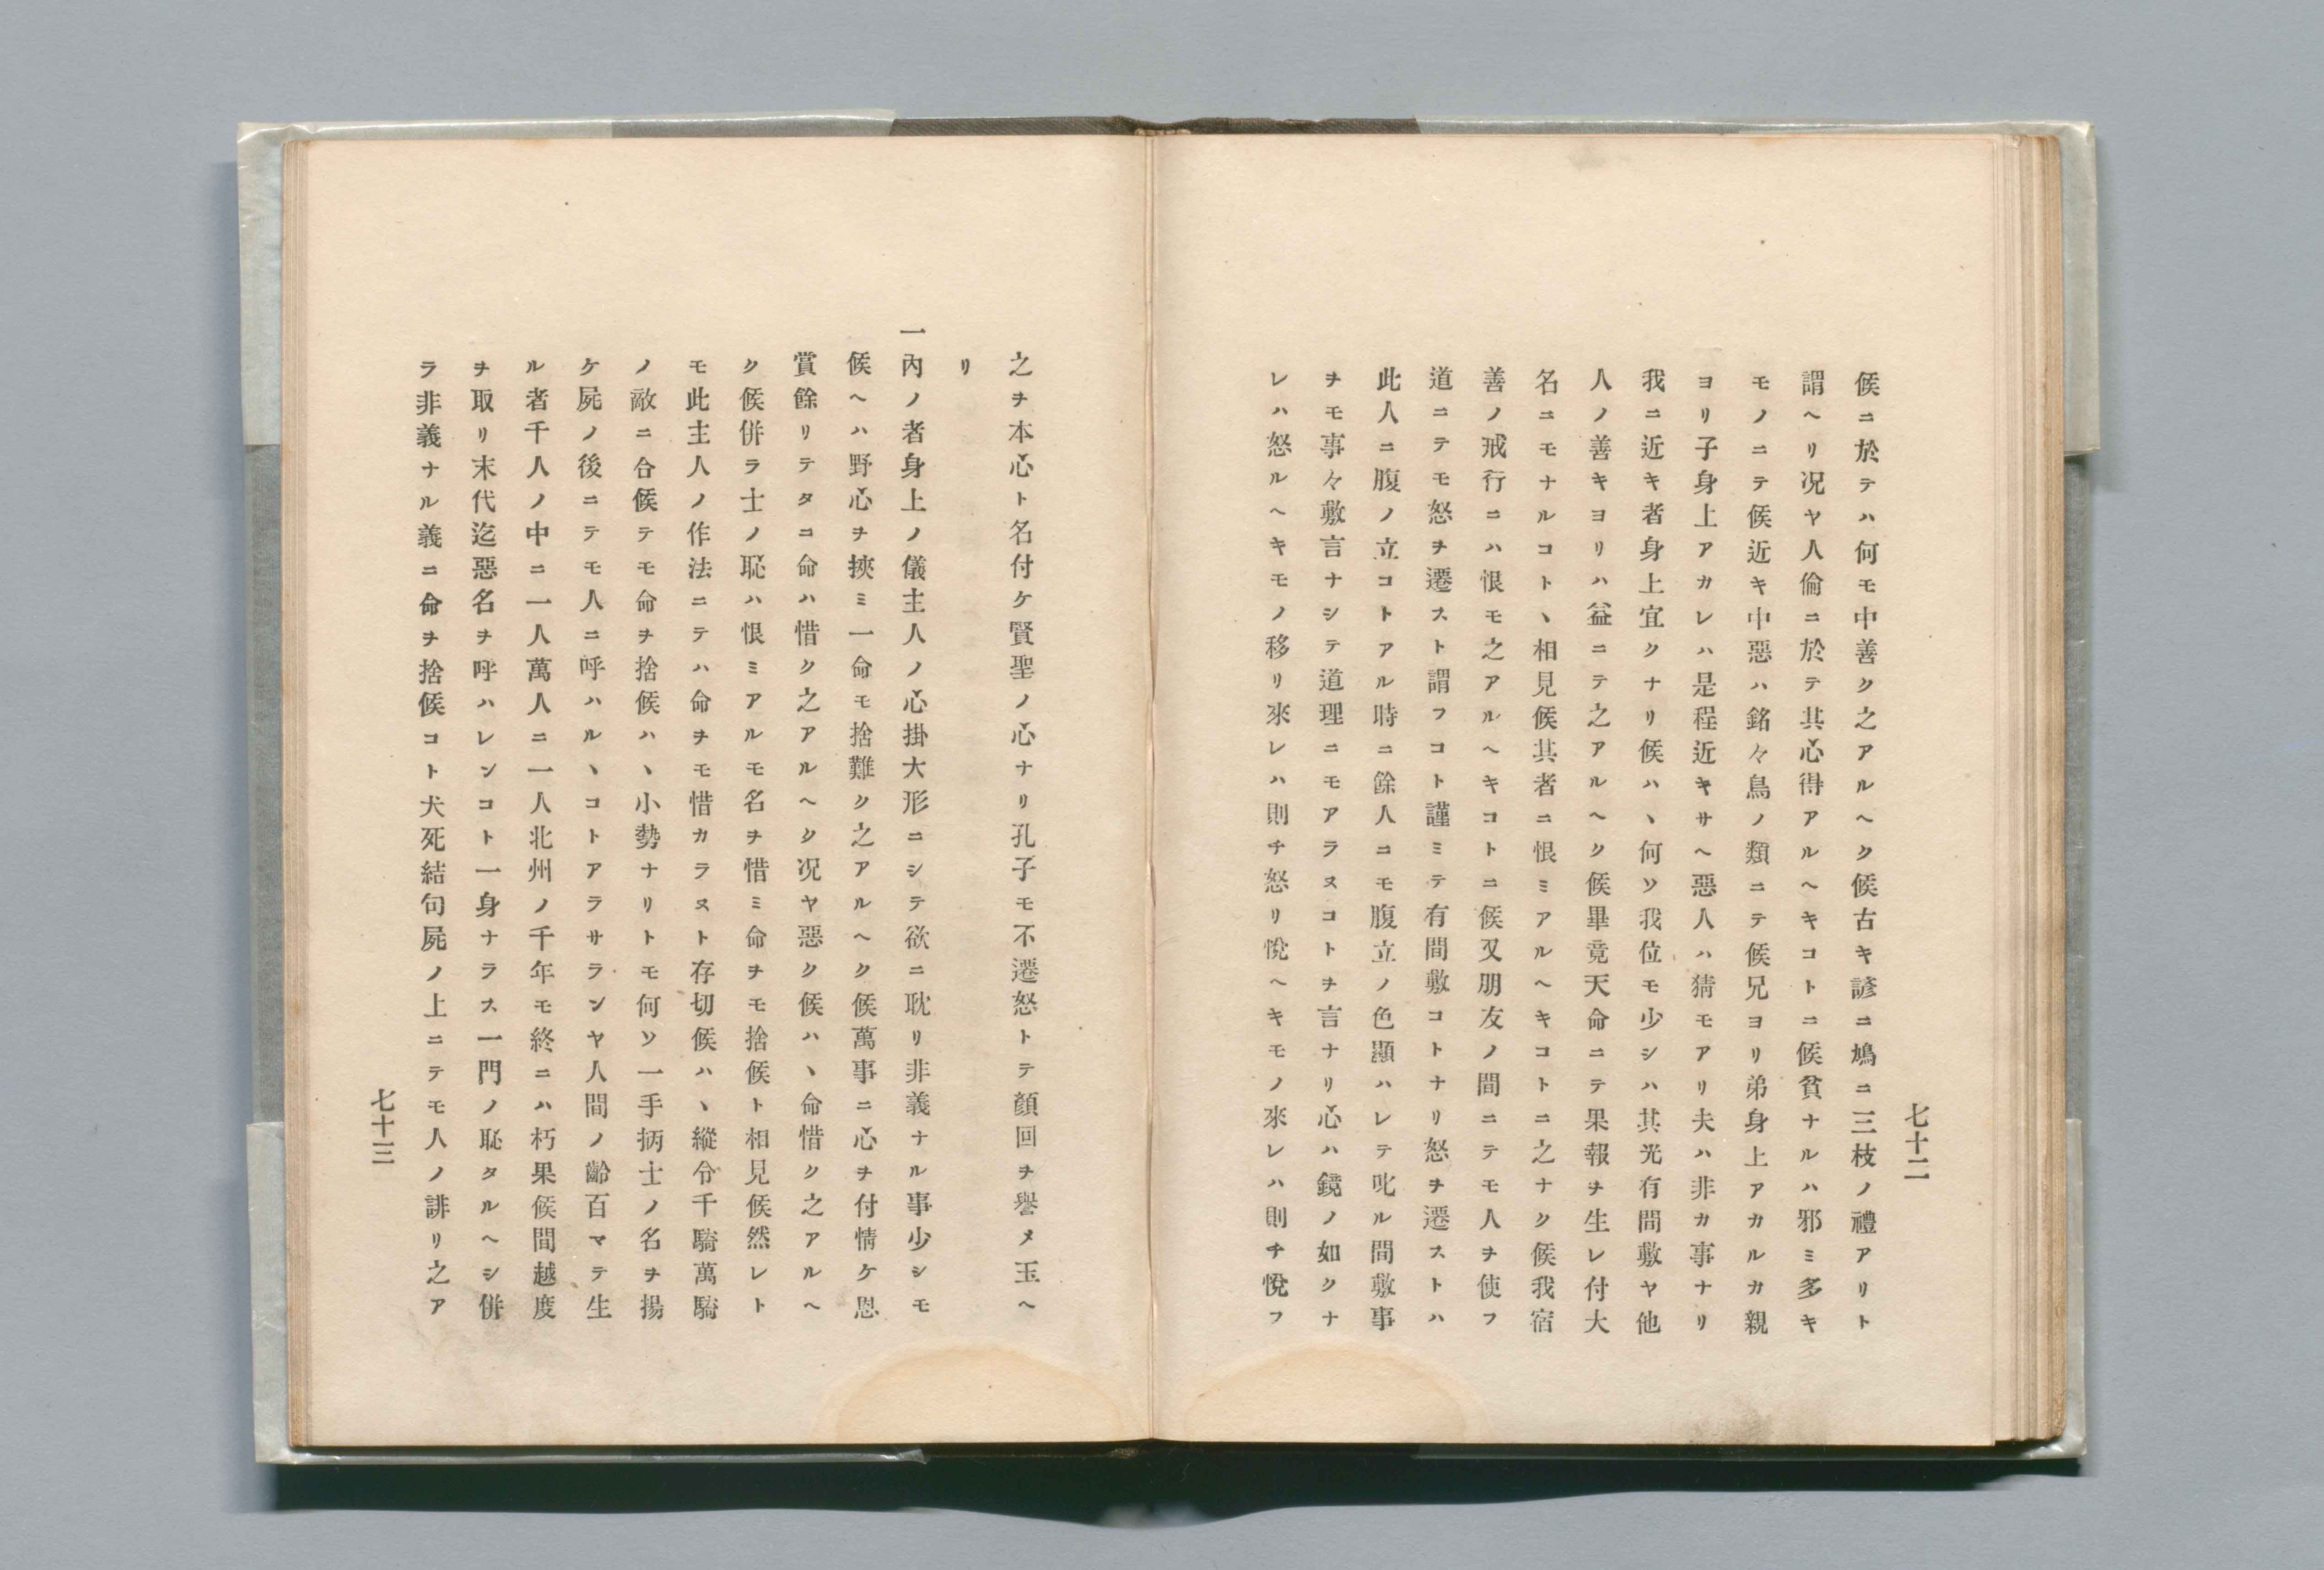 七十二
候ニ於テハ何モ中善ク之アルヘク候古キ諺ニ鳩ニ三枝ノ禮アリト
謂ヘリ况ヤ人倫ニ於テ其心得アルヘキコトニ候貧ナルハ邪ミ多キ
モノニテ候近キ中惡ハ銘々鳥ノ類ニテ候兄ヨリ弟身上アカルカ親
ヨリ子身上アカレハ是程近キサヘ惡人ハ猜モアリ夫ハ非カ事ナリ
我ニ近キ者身上宜クナリ候ハヽ何ソ我位モ少シハ其光有間敷ヤ他
人ノ善キヨリハ益ニテ之アルヘク候畢竟天命ニテ果報ヲ生レ付大
名ニモナルコトヽ相見候其者ニ恨ミアルヘキコトニ之ナク候我宿
善ノ戒行ニハ恨モ之アルヘキコトニ候又朋友ノ間ニテモ人ヲ使フ
道ニテモ怒ヲ遷スト謂フコト謹ミテ有間敷コトナリ怒ヲ遷ストハ
此人ニ腹ノ立コトアル時ニ餘人ニモ腹立ノ色顯ハレテ叱ル間敷事
ヲモ事々敷言ナシテ道理ニモアラヌコトヲ言ナリ心ハ鏡ノ如クナ
レハ怒ルヘキモノ移リ來レハ則チ怒リ悅ヘキモノ來レハ則チ悅フ
之ヲ本心ト名付ケ賢聖ノ心ナリ孔子モ不遷怒トテ顏回ヲ譽メ玉ヘ
リ
一內ノ者身上ノ儀主人ノ心掛大形ニシテ欲ニ耽リ非義ナル事少シモ
候ヘハ野心ヲ挾ミ一命モ捨難ク之アルヘク候萬事ニ心ヲ付情ケ恩
賞餘リテタコ命ハ惜ク之アルヘク况ヤ惡ク候ハヽ命惜ク之アルヘ
ク候併ラ士ノ恥ハ恨ミアルモ名ヲ惜ミ命ヲモ捨候ト相見候然レト
モ此主人ノ作法ニテハ命ヲモ惜カラヌト存切候ハヽ縱令千騎萬騎
ノ敵ニ合候テモ命ヲ捨候ハヽ小勢ナリトモ何ソ一手抦士ノ名ヲ揚
ケ屍ノ後ニテモ人ニ呼ハルヽコトアラサランヤ人間ノ齡百マテ生
ル者千人ノ中ニ一人萬人ニ一人北州ノ千年モ終ニハ朽果候間越度
ヲ取リ末代迄惡名ヲ呼ハレンコト一身ナラス一門ノ恥タルヘシ併
ラ非義ナル義ニ命ヲ捨候コト犬死結句屍ノ上ニテモ人ノ誹リ之ア
七十三